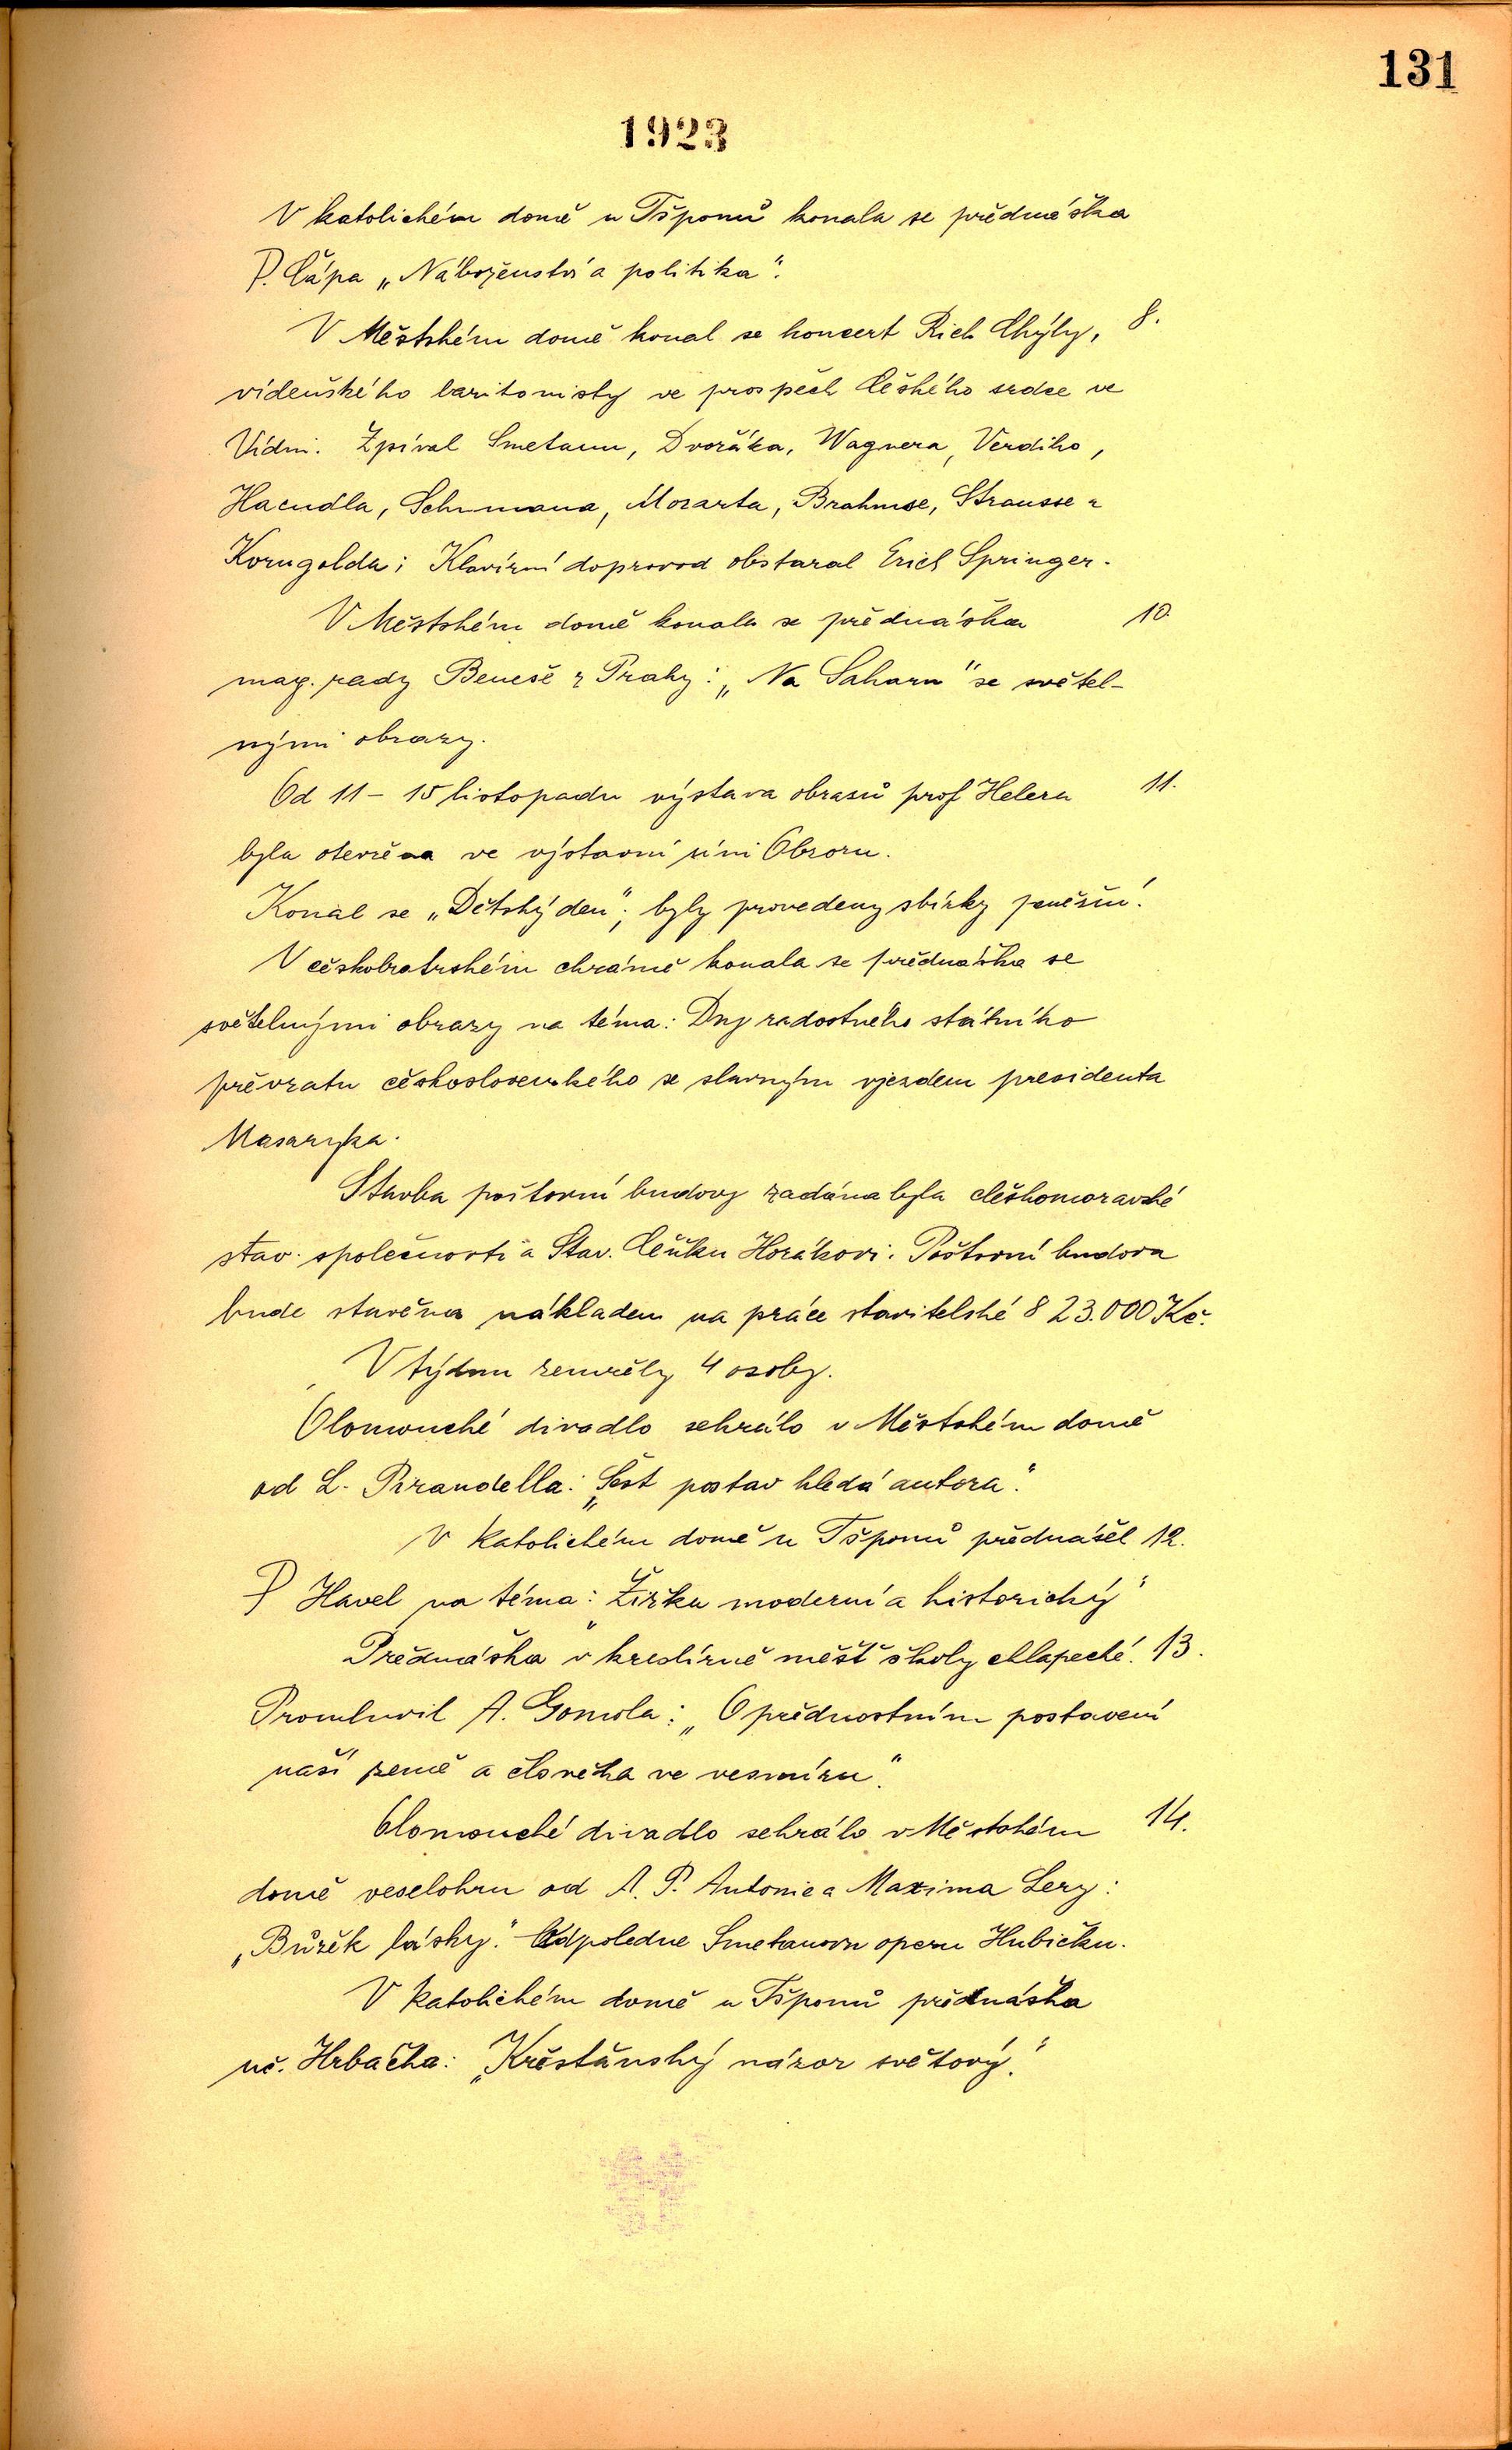 131
1923
V katolickém domě u Tšponů konala se přednáška
P. Čápa „Náboženství a politika“.
V Městském domě konal se koncert Rich Chýly, 8.
vídeňského baritonisty ve prospěch Českého srdce ve
Vídni. Zpíval Smetanu, Dvořáka, Wagnera, Verdiho,
Haendla, Schumana, Mozarta, Brahmse, Strausse a
Korngolda; Klavírní doprovod obstaral Erich Springer.
V Městském domě konala se přednáška 10.
mag. rady Beneše z Prahy: „Na Saharu“ se světel-
nými obrazy.
Od 11 – 15 listopadu výstava obrazů prof Helera 11.
byla otevřena ve výstavní síni Obzoru.
Konal se „Dětský den“; byly provedeny sbírky peněžní.
V českobratrském chrámě konala se přednáška se
světelnými obrazy na téma: Dny radostného státního
převratu československého se slavným vjezdem presidenta
Masaryka.
Stavba poštovní budovy zadána byla českomoravské
stav. společnosti a Stav. Čeňku Horákovi. Poštovní budova
bude stavěna nákladem na práce stavitelské 823.000 Kč.
V týdnu zemřely 4 osoby.
Olomoucké divadlo sehrálo v Městském domě
od L. Pirandella: „Šest postav hledá autora“.
V Katolickém domě u Tšponů přednášel 12.
P Havel na téma: „Žižka moderní a historický“
Přednáška v kreslírně měšť školy chlapecké. 13.
Promluvil A. Gomola: „O přednostním postavení
naší země a člověka ve vesmíru“.
Olomoucké divadlo sehrálo v Městském 14.
domě veselohru od A. P. Antonie a Maxima Lery:
„Bůžek lásky.“ Odpoledne Smetanovu operu Hubičku.
V katolickém domě u Tšponů přednáška
uč. Hrbáčka: „Křesťanský názor světový“.